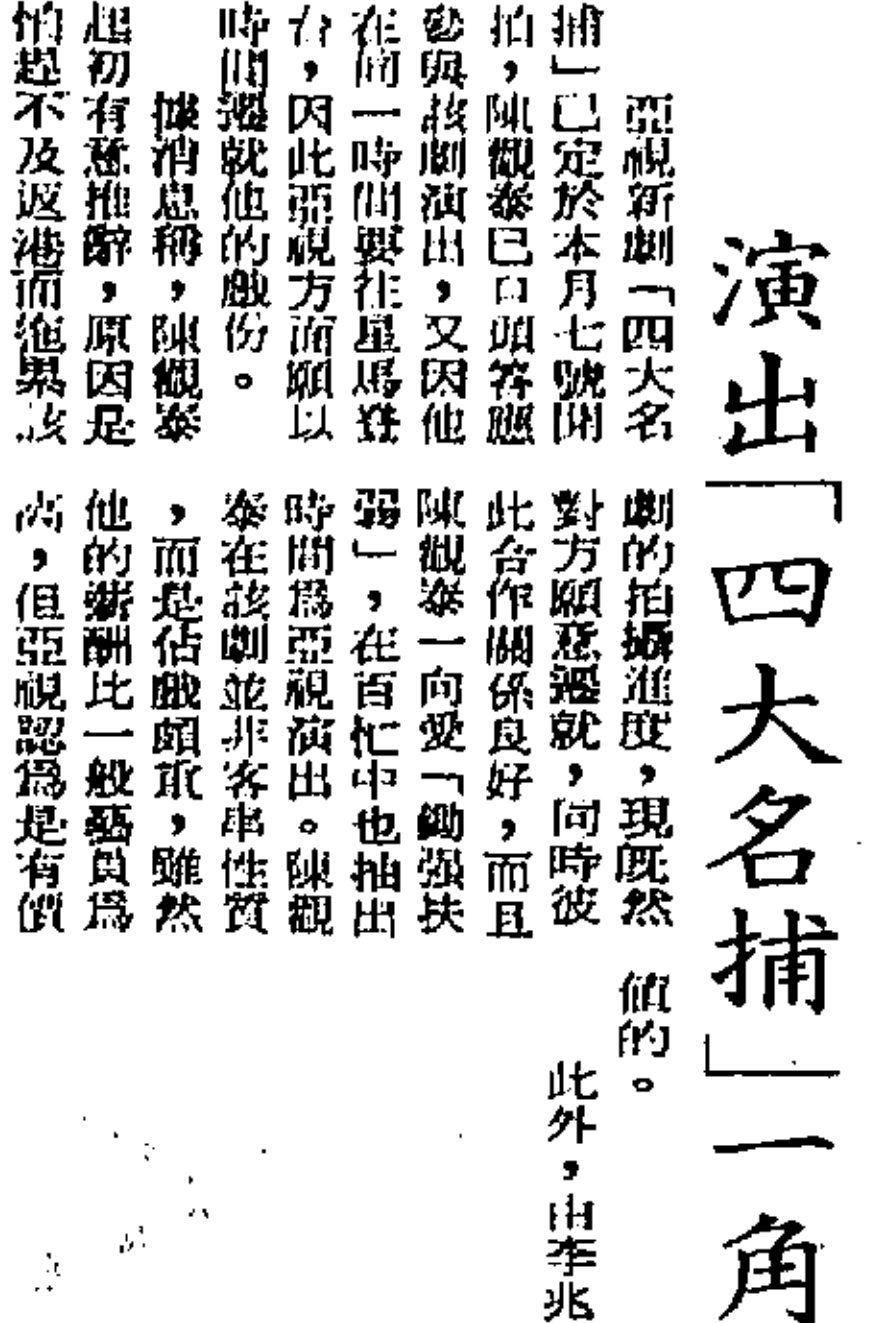 演出「四大名捕」一角
亞視新劇「四大名
捕」已定於本月七號開
拍，陳觀泰已口頭答應
參與該劇演出，又因他
在同一時間要往星馬登
台，因此亞視方面願以
時間遷就他的戲份。
據消息稱，陳觀泰
起初有意推辭，原因是
怕趕不及返港而拖累該
劇的拍攝進度，現既然
對方願意遷就，同時彼
此合作關係良好，而且
陳觀泰一向愛「鋤强扶
弱」，在百忙中也抽出
時間爲亞視演出。陳觀
泰在該劇並非客串性質
，而是佔戲頗重，雖然
他的薪酬比一般藝員爲
高，但亞視認爲是有價
值的。
此外，由李兆